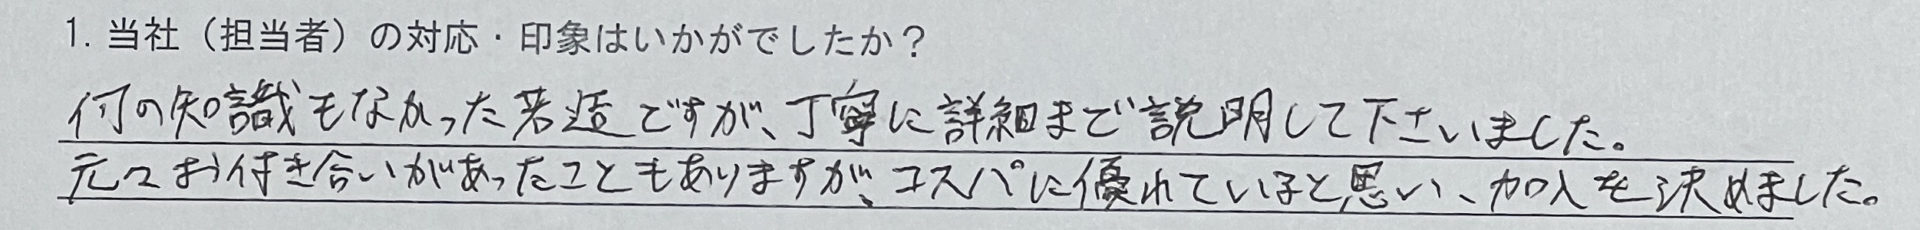 1. 当社（担当者）の対応・印象はいかがでしたか？
何の知識もなかった若造ですが、丁寧に詳細まで説明して下さいました。
元々お付き合いがあったこともありますが、コスパに優れていると思い、加入を決めました。